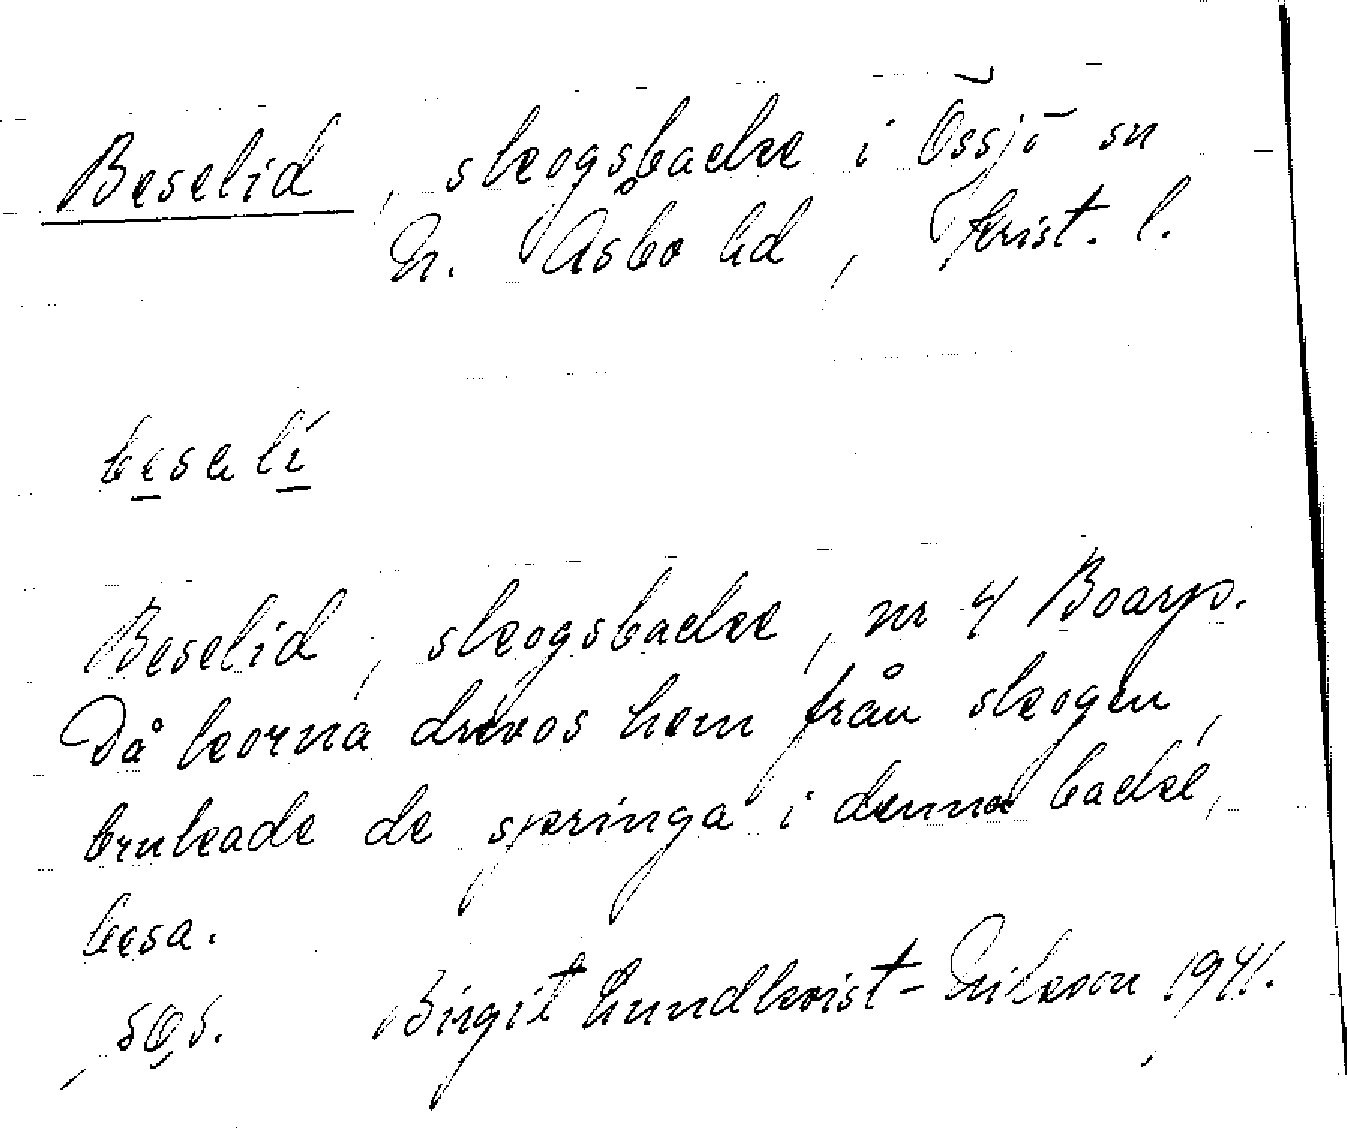 Beselid, skogsbacke i Össjö sn
N. Åsbo hd, Krist. l.
besalí
Beselid, skogsbacke, nr 4 Boarp.
Då korna drevos hem från skogen,
brukade de springa i denna backe,
besa.
Birgit Lundkvist-Eriksson 1941.